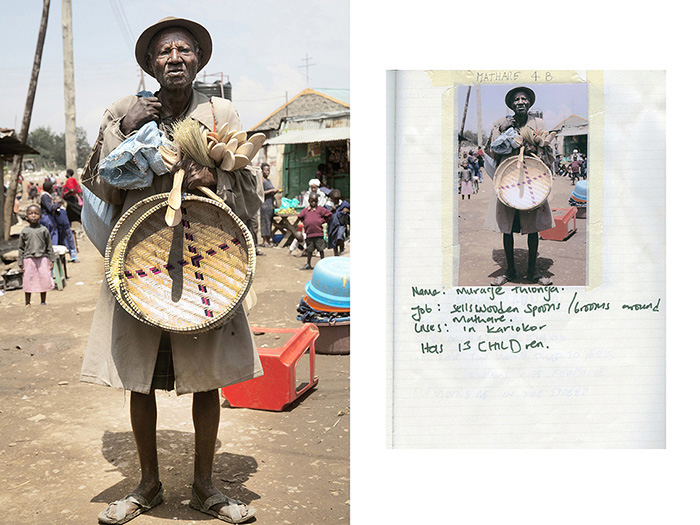 MATHARE 4 B
Name: Murage Thionga.
Job: sells wooden spoons / brooms around
Mathare.
Lives: in Kariokor
Has 13 CHILDren.